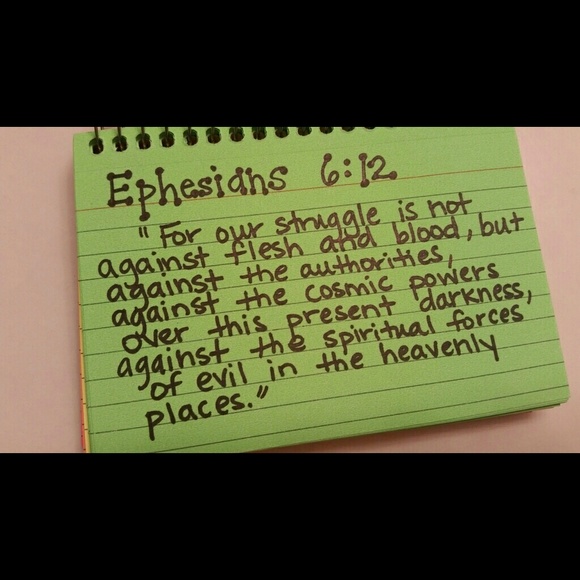 Ephesians 6:12
"For our struggle is not
against flesh and blood, but
against the authorities,
against the cosmic powers
over this present darkness,
against the spiritual forces
of evil in the heavenly
places."